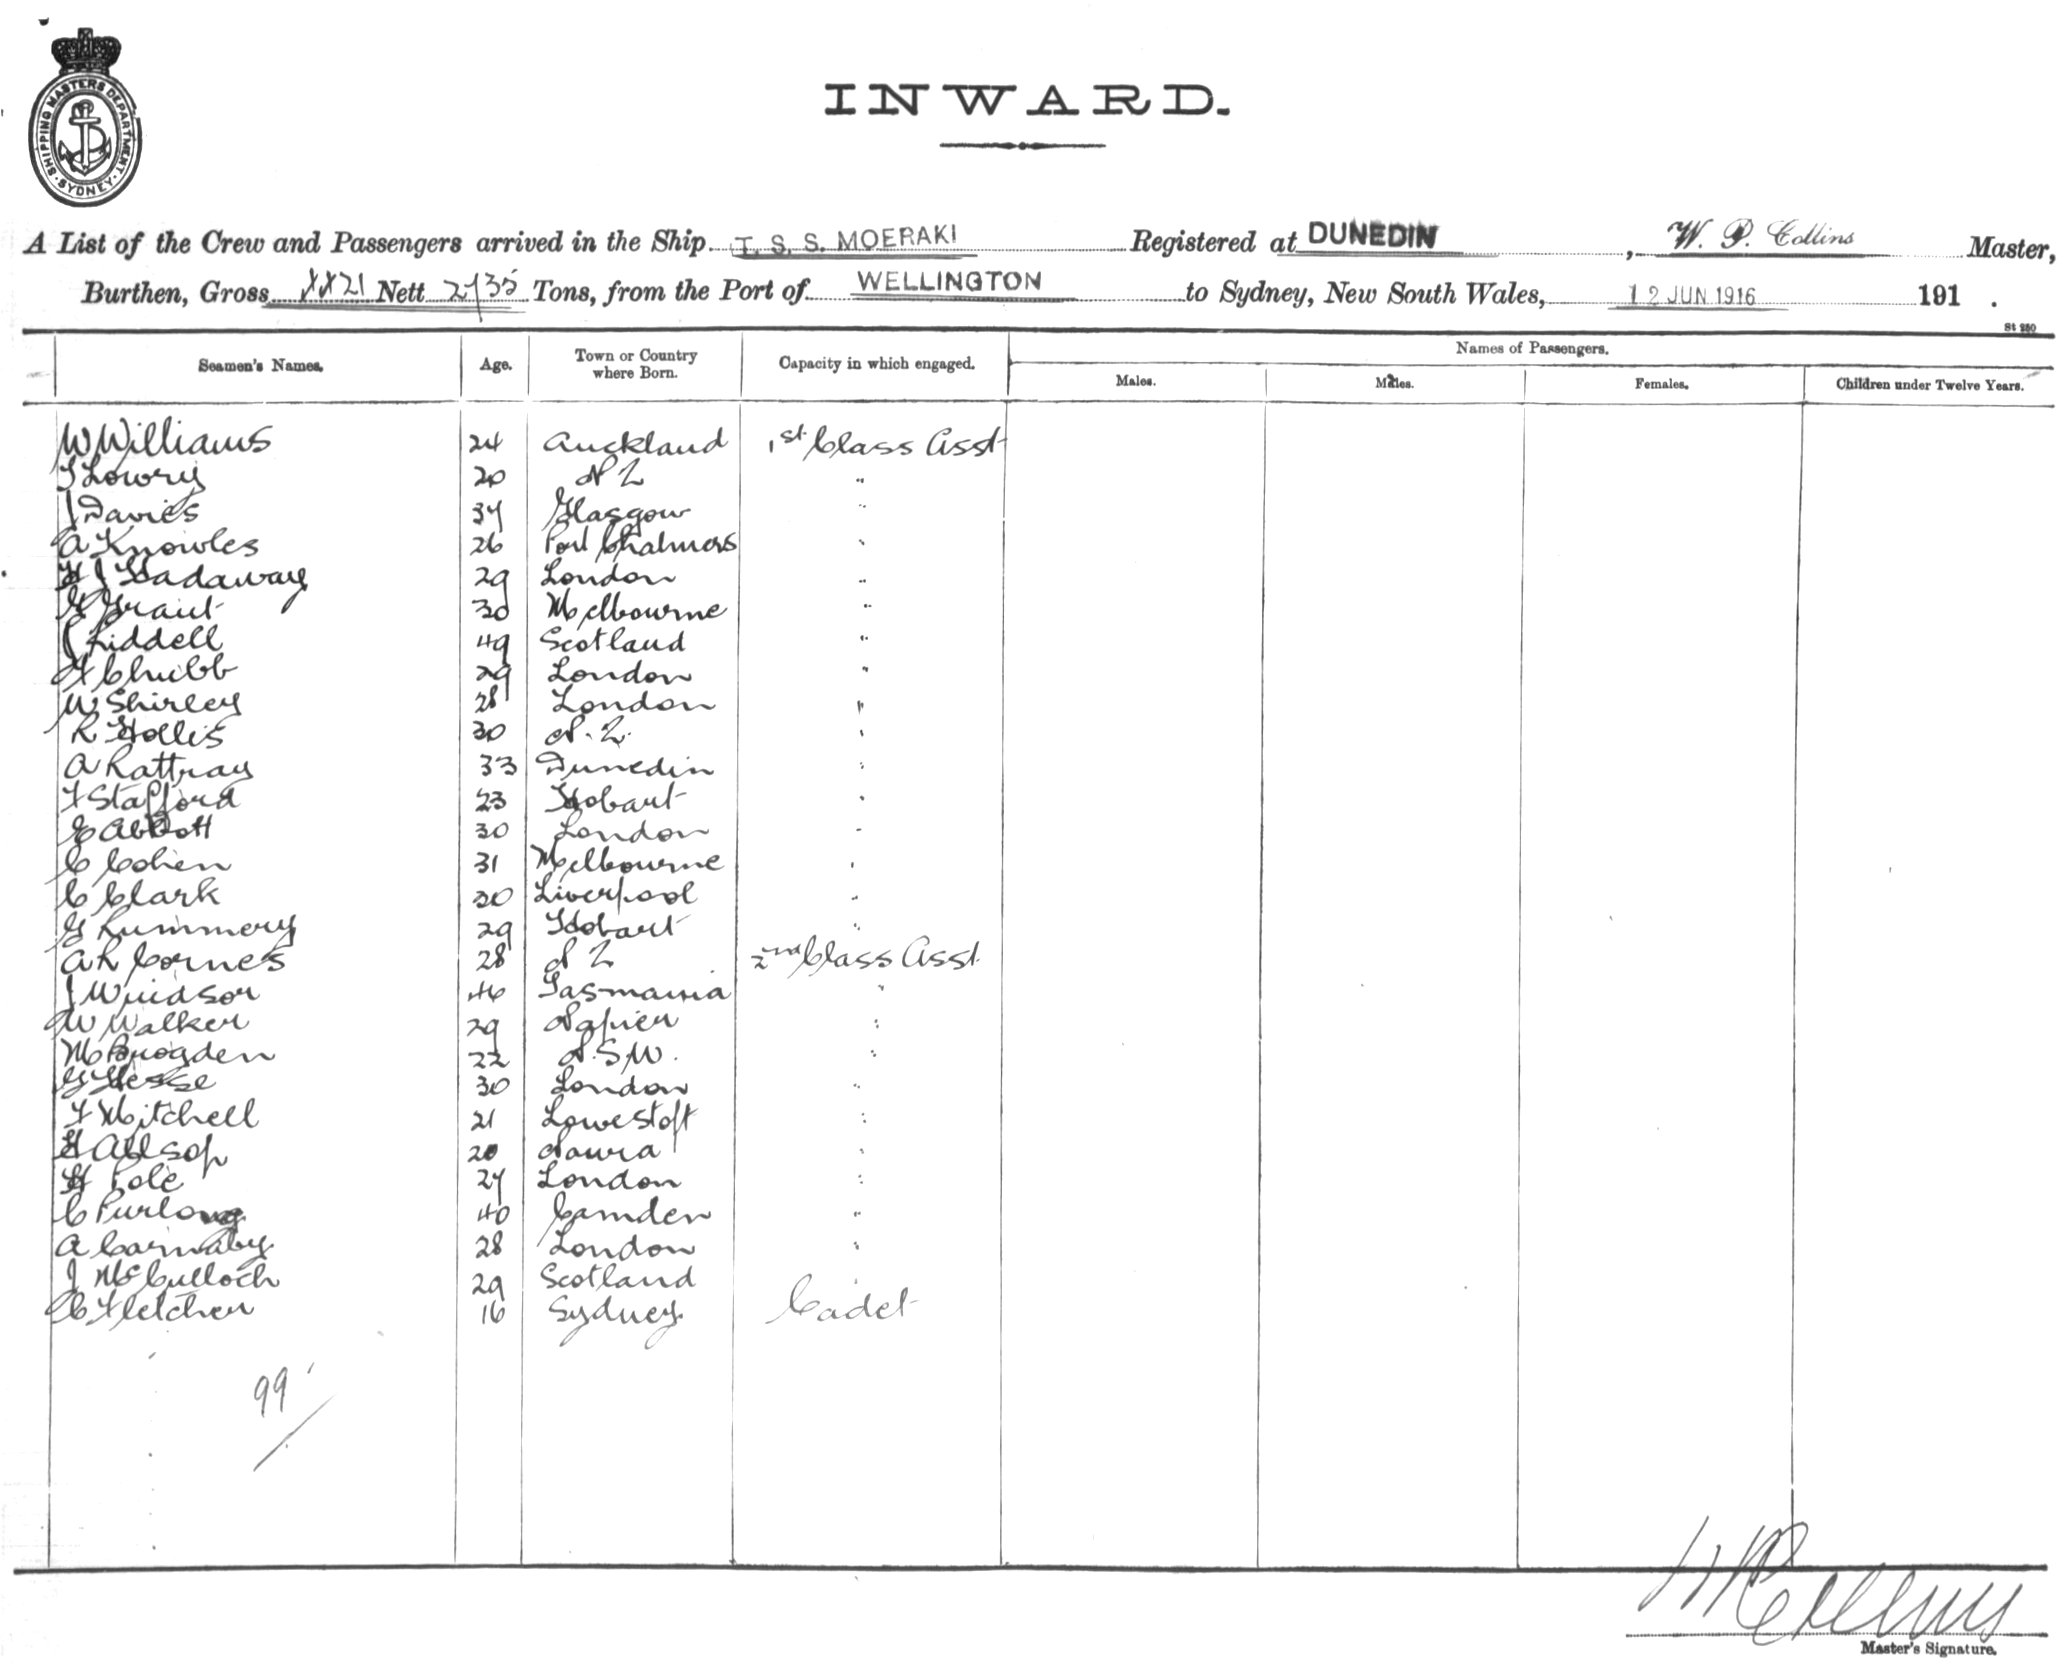 SHIPPING MASTERS DEPARTMENT SYDNEY
INWARD.
A List of the Crew and Passengers arrived in the Ship T. S. S. MOERAKI Registered at DUNEDIN, W. P. Collins Master,
Burthen, Gross XX21 Nett 2735 Tons, from the Port of WELLINGTON to Sydney, New South Wales, 12 JUN 1916 191 .
St 250
Seamen's Names. Age. Town or Country where Born. Capacity in which engaged. Names of Passengers.
Males. Males. Females. Children under Twelve Years.
W Williams 24 Auckland 1st Class Asst
T Lowry 20 N Z "
J Davies 37 Glasgow "
A Knowles 26 Port Chalmers "
H J Hadaway 29 London "
G Grant 30 Melbourne "
J Liddell 49 Scotland "
F Chubb 29 London "
W Shirley 28 London "
R Hollis 30 N. Z. "
A Rattray 33 Dunedin "
F Stafford 23 Hobart "
E Abbott 30 London "
C Cohen 31 Melbourne "
C Clark 30 Liverpool "
G Rummery 29 Hobart "
A R Cornes 28 N Z 2nd Class Asst.
J Windsor 46 Tasmania "
W Walker 29 Napier "
M Brogden 22 N.S.W. "
G Hesse 30 London "
F Mitchell 21 Lowestoft "
H Allsop 20 Nowra "
H Pole 27 London "
C Purlong 40 Camden "
A Carnaby 28 London "
J McCulloch 29 Scotland "
C Fletcher 16 Sydney Cadet
99
W P Collins
Master's Signature.